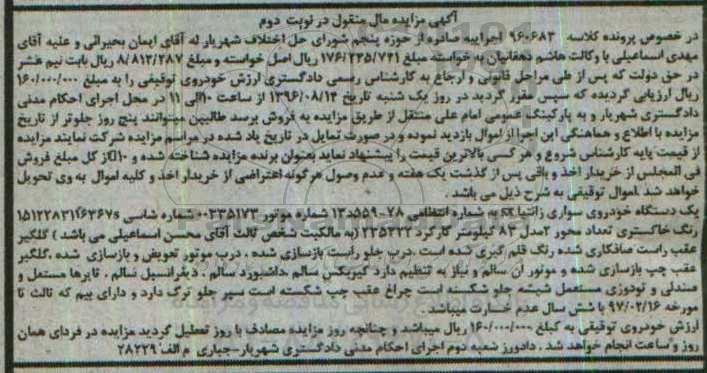 آگهی مزایده مال منقول در نوبت دوم
در خصوص پرونده کلاسه ۹۶۰۶۸۳ اجراییه صادره از حوزه پنجم شورای حل اختلاف شهریار له آقای ایمان بحیرائی و علیه آقای
مهدی اسماعیلی با وکالت هاشم دهقانیان به خواسته مبلغ ۱۷۶/۲۳۵/۷۴۱ ریال اصل خواسته و مبلغ ۸/۸۱۲/۲۸۷ ریال بابت نیم عشر
در حق دولت که پس از طی مراحل قانونی و ارجاع به کارشناس رسمی دادگستری ارزش خودروی توقیفی را به مبلغ ۱۶۰/۰۰۰/۰۰۰
ریال ارزیابی گردیده که سپس مقرر گردید در روز یک شنبه تاریخ ۱۳۹۶/۰۸/۱۴ از ساعت ۱۰الی ۱۱ در محل اجرای احکام مدنی
دادگستری شهریار و به پارکینگ عمومی امام علی منتقل از طریق مزایده به فروش برسد طالبین میتوانند پنج روز جلوتر از تاریخ
مزایده با اطلاع و هماهنگی این اجرا از اموال بازدید نموده و در صورت تمایل در تاریخ یاد شده در مراسم مزایده شرکت نمایند مزایده
از قیمت پایه کارشناس شروع و هر کسی بالاترین قیمت را پیشنهاد نماید بعنوان برنده مزایده شناخته شده و ۱۰٪از کل مبلغ فروش
فی المجلس از خریدار اخذ و باقی پس از گذشت یک هفته و عدم وصول هرگونه اعتراضی از خریدار اخذ و کلیه اموال به وی تحویل
خواهد شد .اموال توقیفی به شرح ذیل می باشد .
یک دستگاه خودروی سواری زانتیا sx به شماره انتظامی ۷۸-۵۵۹د۱۳ شماره موتور ۰۰۳۳۵۱۷۳ شماره شاسی
رنگ خاکستری تعداد محور ۲مدل ۸۳ کیلومتر کارکرد ۲۳۵۳۲۲ (به مالکیت شخص ثالث آقای محسن اسماعیلی می باشد ) گلگیر
عقب راست صافکاری شده رنگ قلم گیری شده است .درب جلو راست بازسازی شده . درب موتور تعویض و بازسازی شده .گلگیر
عقب چپ بازسازی شده و موتور آن سالم و نیاز به تنظیم دارد گیربکس سالم .داشبورد سالم . دیفرانسیل سالم . تایرها مستعمل و
صندلی و تودوزی مستعمل شیشه جلو شکسته است چراغ عقب چپ شکسته است سپر جلو ترک دارد و دارای بیم که ثالث تا
مورخه ۹۷/۰۲/۱۶ با شش سال عدم خسارت میباشد .
ارزش خودروی توقیفی به کبلغ ۱۶۰/۰۰۰/۰۰۰ ریال میباشد و چنانچه روز مزایده مصادف با روز تعطیل گردید مزایده در فردای همان
روز و ساعت انجام خواهد شد . دادورز شعبه دوم اجرای احکام مدنی دادگستری شهریار-جباری م الف ۲۸۲۲۹